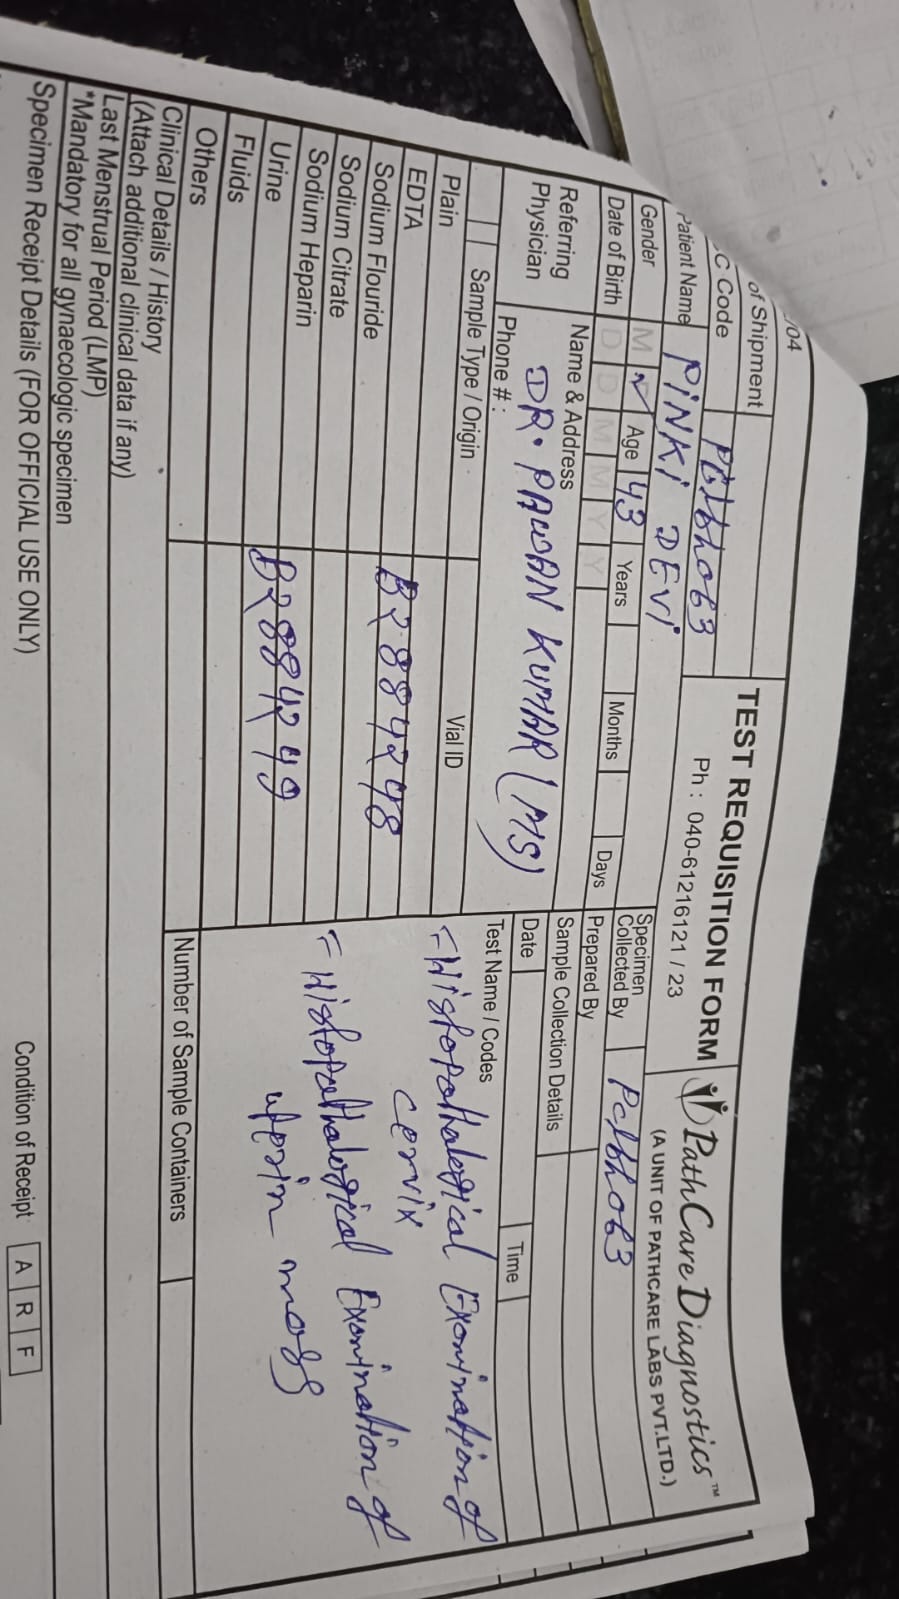 /04
of Shipment
C Code PCLbh063
TEST REQUISITION FORM
Ph : 040-61216121 / 23
PathCare Diagnostics™
(A UNIT OF PATHCARE LABS PVT.LTD.)
Patient Name PINKI DEVI
Gender M Age 43 Years Months Days
Date of Birth D D M M Y Y
Specimen Collected By Pclbh063
Prepared By
Referring Physician
Name & Address
DR. PAWAN KUMAR (MS)
Phone # :
Sample Collection Details
Date Time
Sample Type / Origin Vial ID
Test Name / Codes
Plain
EDTA
Sodium Flouride B2884248
Sodium Citrate
Sodium Heparin
Urine B2884249
Fluids
Others
Histopathological Examination of
cervix
Histopathological Examination of
mass
Number of Sample Containers
Clinical Details / History
(Attach additional clinical data if any)
Last Menstrual Period (LMP)
*Mandatory for all gynaecologic specimen
Specimen Receipt Details (FOR OFFICIAL USE ONLY)
Condition of Receipt A R F